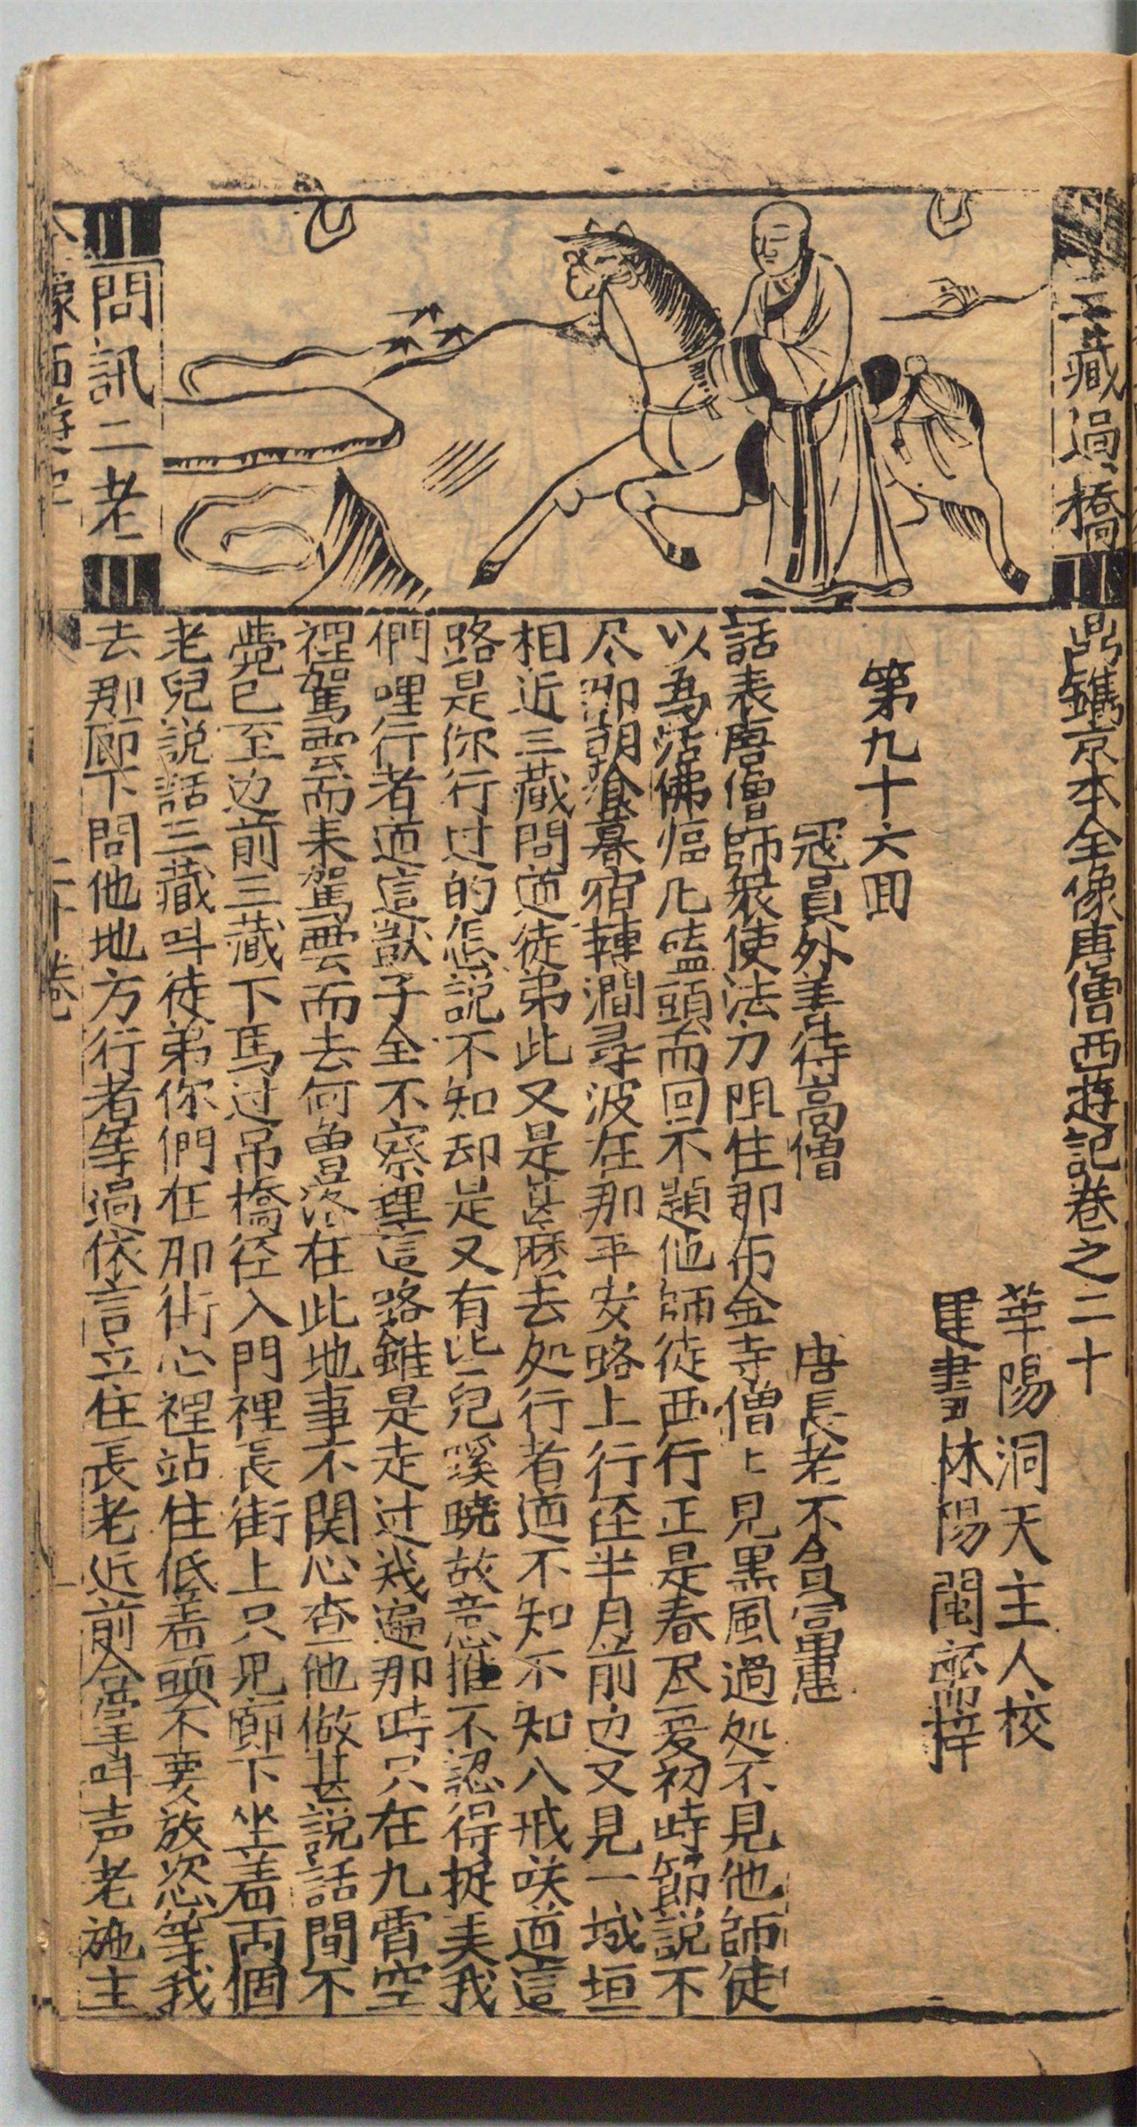 三藏過橋
問訊二老
鼎鐫京本全像唐僧西遊記卷之二十
華陽洞天主人校
書林陽閩齋梓
第九十六回
冦員外善待高僧　唐長老不貪富惠
話表唐僧師衆使法力阻住那布金寺僧〻見黑風過処不見他師徒
以為活佛臨凡嗑頭而回不題他師徒西行正是春尽夏初時節說不
尽那朝飡暮宿轉澗尋波在那平安路上行徑半月前边又見一城垣
相近三藏問道徒弟此又是甚麽去処行者道不知不知八戒咲道這
路是你行过的怎說不知却是又有些兒蹊曉故意推不認得捉美我
們哩行者道這獃子全不察理這路雖是走过幾遍那時只在九霄空
裡駕雲而来駕雲而去何曾落在此地事不関心查他做甚說話間不
覺已至边前三藏下馬过吊橋径入門裡長街上只見廊下坐着両個
老兒說話三藏叫徒弟你們在那街心裡站住低着頭不要放恣等我
去那廊下問他地方行者等過依言立住長老近前合掌叫声老施主
全像西遊記
二十卷
一